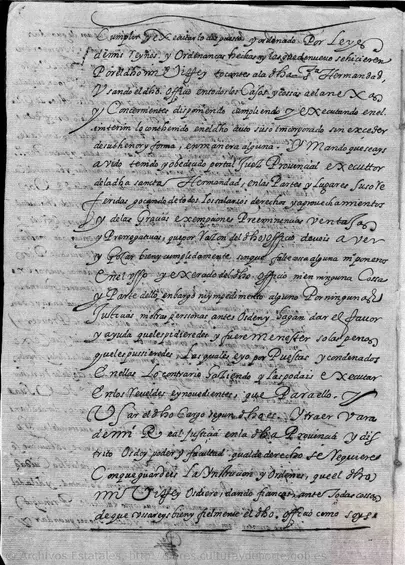 Cumplir y executar lo dispuesto y ordenado Por Leyes
de mis Reynos, y Ordenanças hechas y las que de nuevo se hicieren
Por el dho mi Virrey tocantes a la dha Sta Hermandad,
Usando el dho officio en todos los Casos y cosas a el anexas
y Concernientes disponiendo cumpliendo y executando en el
interin lo contenido en el dho auto suso incorporado sin exceder
de su thenor y forma, en manera alguna. Y Mando que seays
avido tenido y obedezido por tal Juez Provincial executtor
de la dha sancta Hermandad, en las Partes y Lugares suso re
feridas gozando de todos los salarios derechos y aprovechamientos
y de las Gracias exempciones Preeminencias ventajas
y Prerrogativas, que por raçon del dho officio deveis aver
y goçar bien y cumplidamente sin que falte cossa alguna ni poneros
en el usso y exercicio del dho officio, ni en ninguna Cossa
y Parte dello embargo ni ympedimento alguno Por ningunas
Justicias ni otras personas antes os den y hagan dar el favor
y ayuda que les pidieredes y fuere menester so las penas
que les pusieredes, Las quales e yo por Puestas y condenados
en ellas Lo contrario haciendo y las podais executar
en los reveldes e ynovedientes, que Para ello, y
Usar el dho Cargo segun dho es. Y traer vara
de mi Real Justicia en la dha Provincia y dis
trito Os doy poder y facultad qual de derecho se Requiere
Con que guardeis La Ynstrucion y Ordenes, que el dho
mi Virrey os diere; dando fianças, ante todas cossas
de que usareys bien y fielmente el dho officio como soys
© Archivos Estatales,